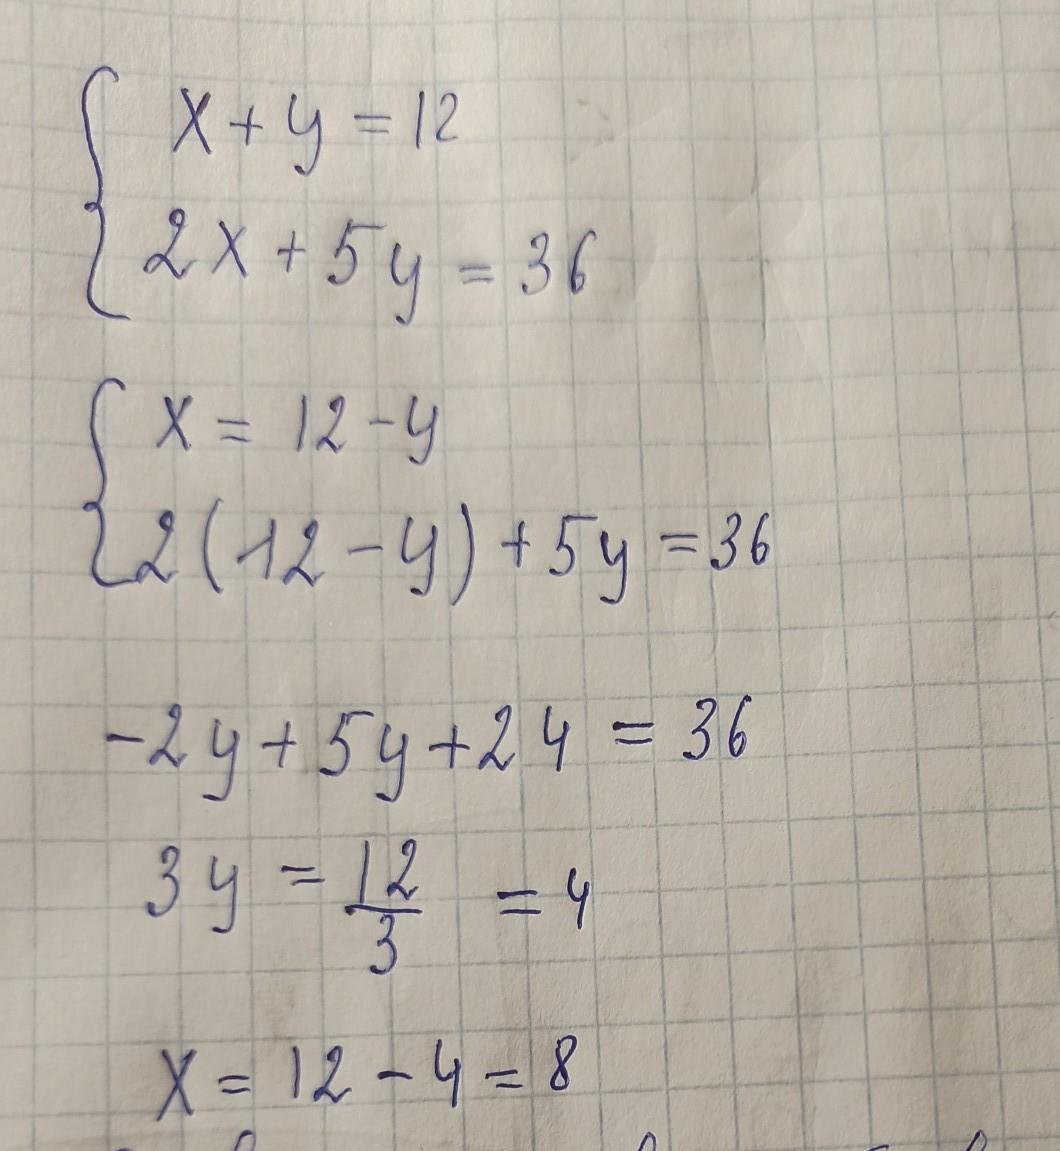 x + y = 12
2x + 5y = 36
x = 12 - y
2(12 - y) + 5y = 36
-2y + 5y + 24 = 36
3y = 12/3 = 4
x = 12 - 4 = 8